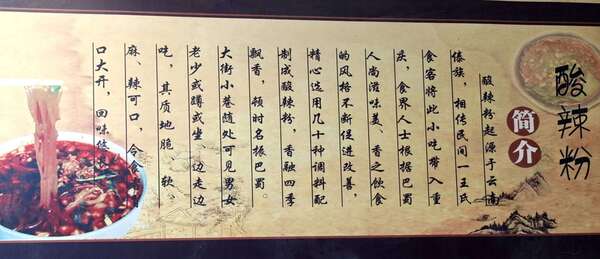 酸辣粉
简介
酸辣粉起源于云南
傣族，相传民间一王氏
食客将此小吃带入重
庆，食界人士根据巴蜀
人尚滋味美、香之饮食
的风格不断促进改善，
精心选用几十种调料配
制成酸辣粉，香融四季
飘香，顿时名振巴蜀。
大街小巷随处可见男女
老少或蹲或坐、边走边
吃，其质地脆、软、
麻、辣可口，令食
口大开，回味悠